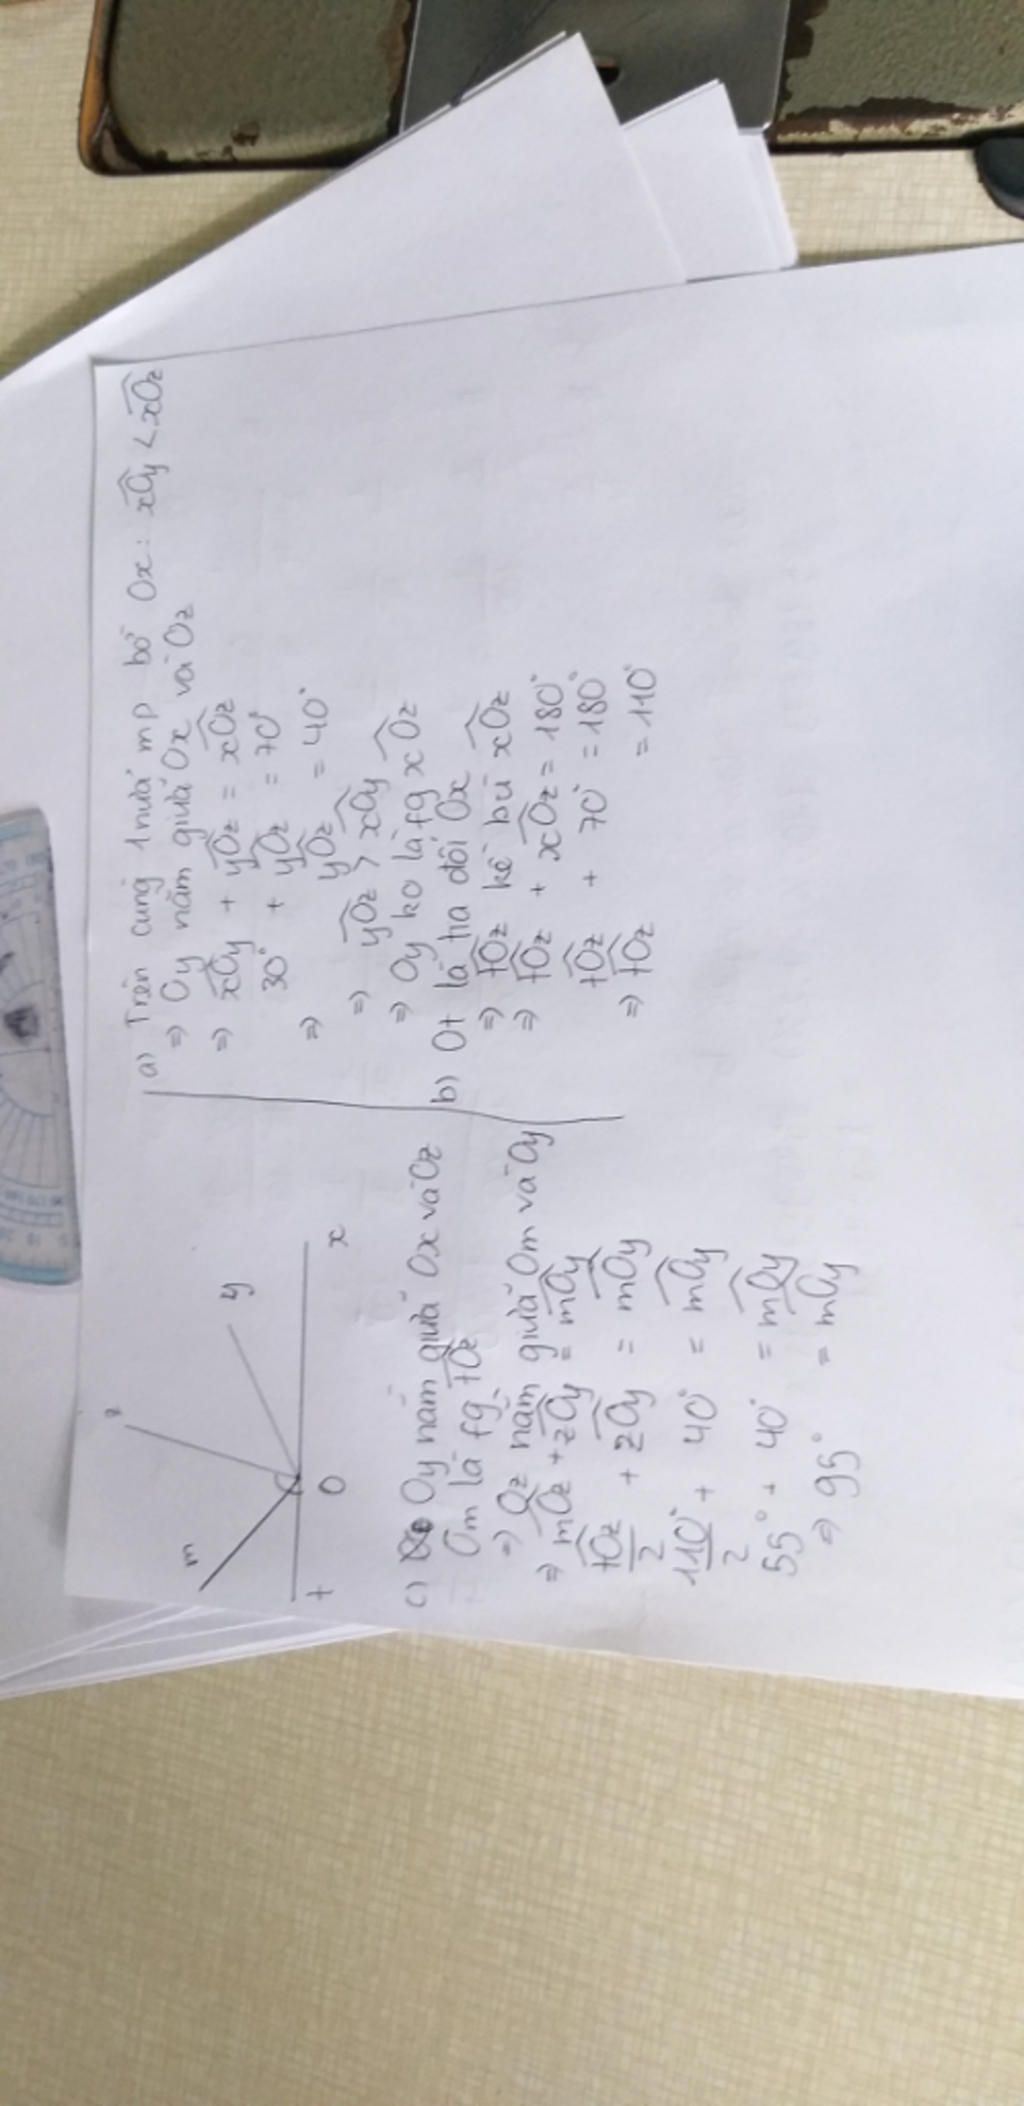 z
y
m
t
O
x
a) Trên cùng 1 nửa mp bờ Ox: xOy < xOz
=> Oy nằm giữa Ox và Oz
=> xOy + yOz = xOz
30° + yOz = 70°
=> yOz = 40°
=> yOz > xOy
=> Oy ko là fg xOz
b) Ot là tia đối Ox
=> tOz kề bù xOz
=> tOz + xOz = 180°
tOz + 70° = 180°
=> tOz = 110°
c) Oy nằm giữa Ox và Oz
Om là fg tOz
=> Oz nằm giữa Om và Oy
=> mOz + zOy = mOy
tOz/2 + zOy = mOy
110°/2 + 40° = mOy
55° + 40° = mOy
=> 95° = mOy